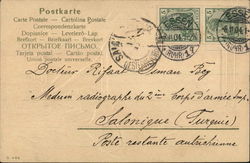 Postkarte
Carte Postale – Cartolina Postale
Correspondenzkarte
Dopisnice – Levelező-Lap
Brefkort – Briefkaart – Brevkort
ОТКРЫТОЕ ПИСЬМО.
Tarjeta postal – Cartão postal
Union postale universelle.
ESSEN
(RUHR) 1
Docteur Rifaat Osman Bey
Medecin radiographe du 2ième corps d'armée Imp.
Salonique (Turquie)
Poste restante autrichienne